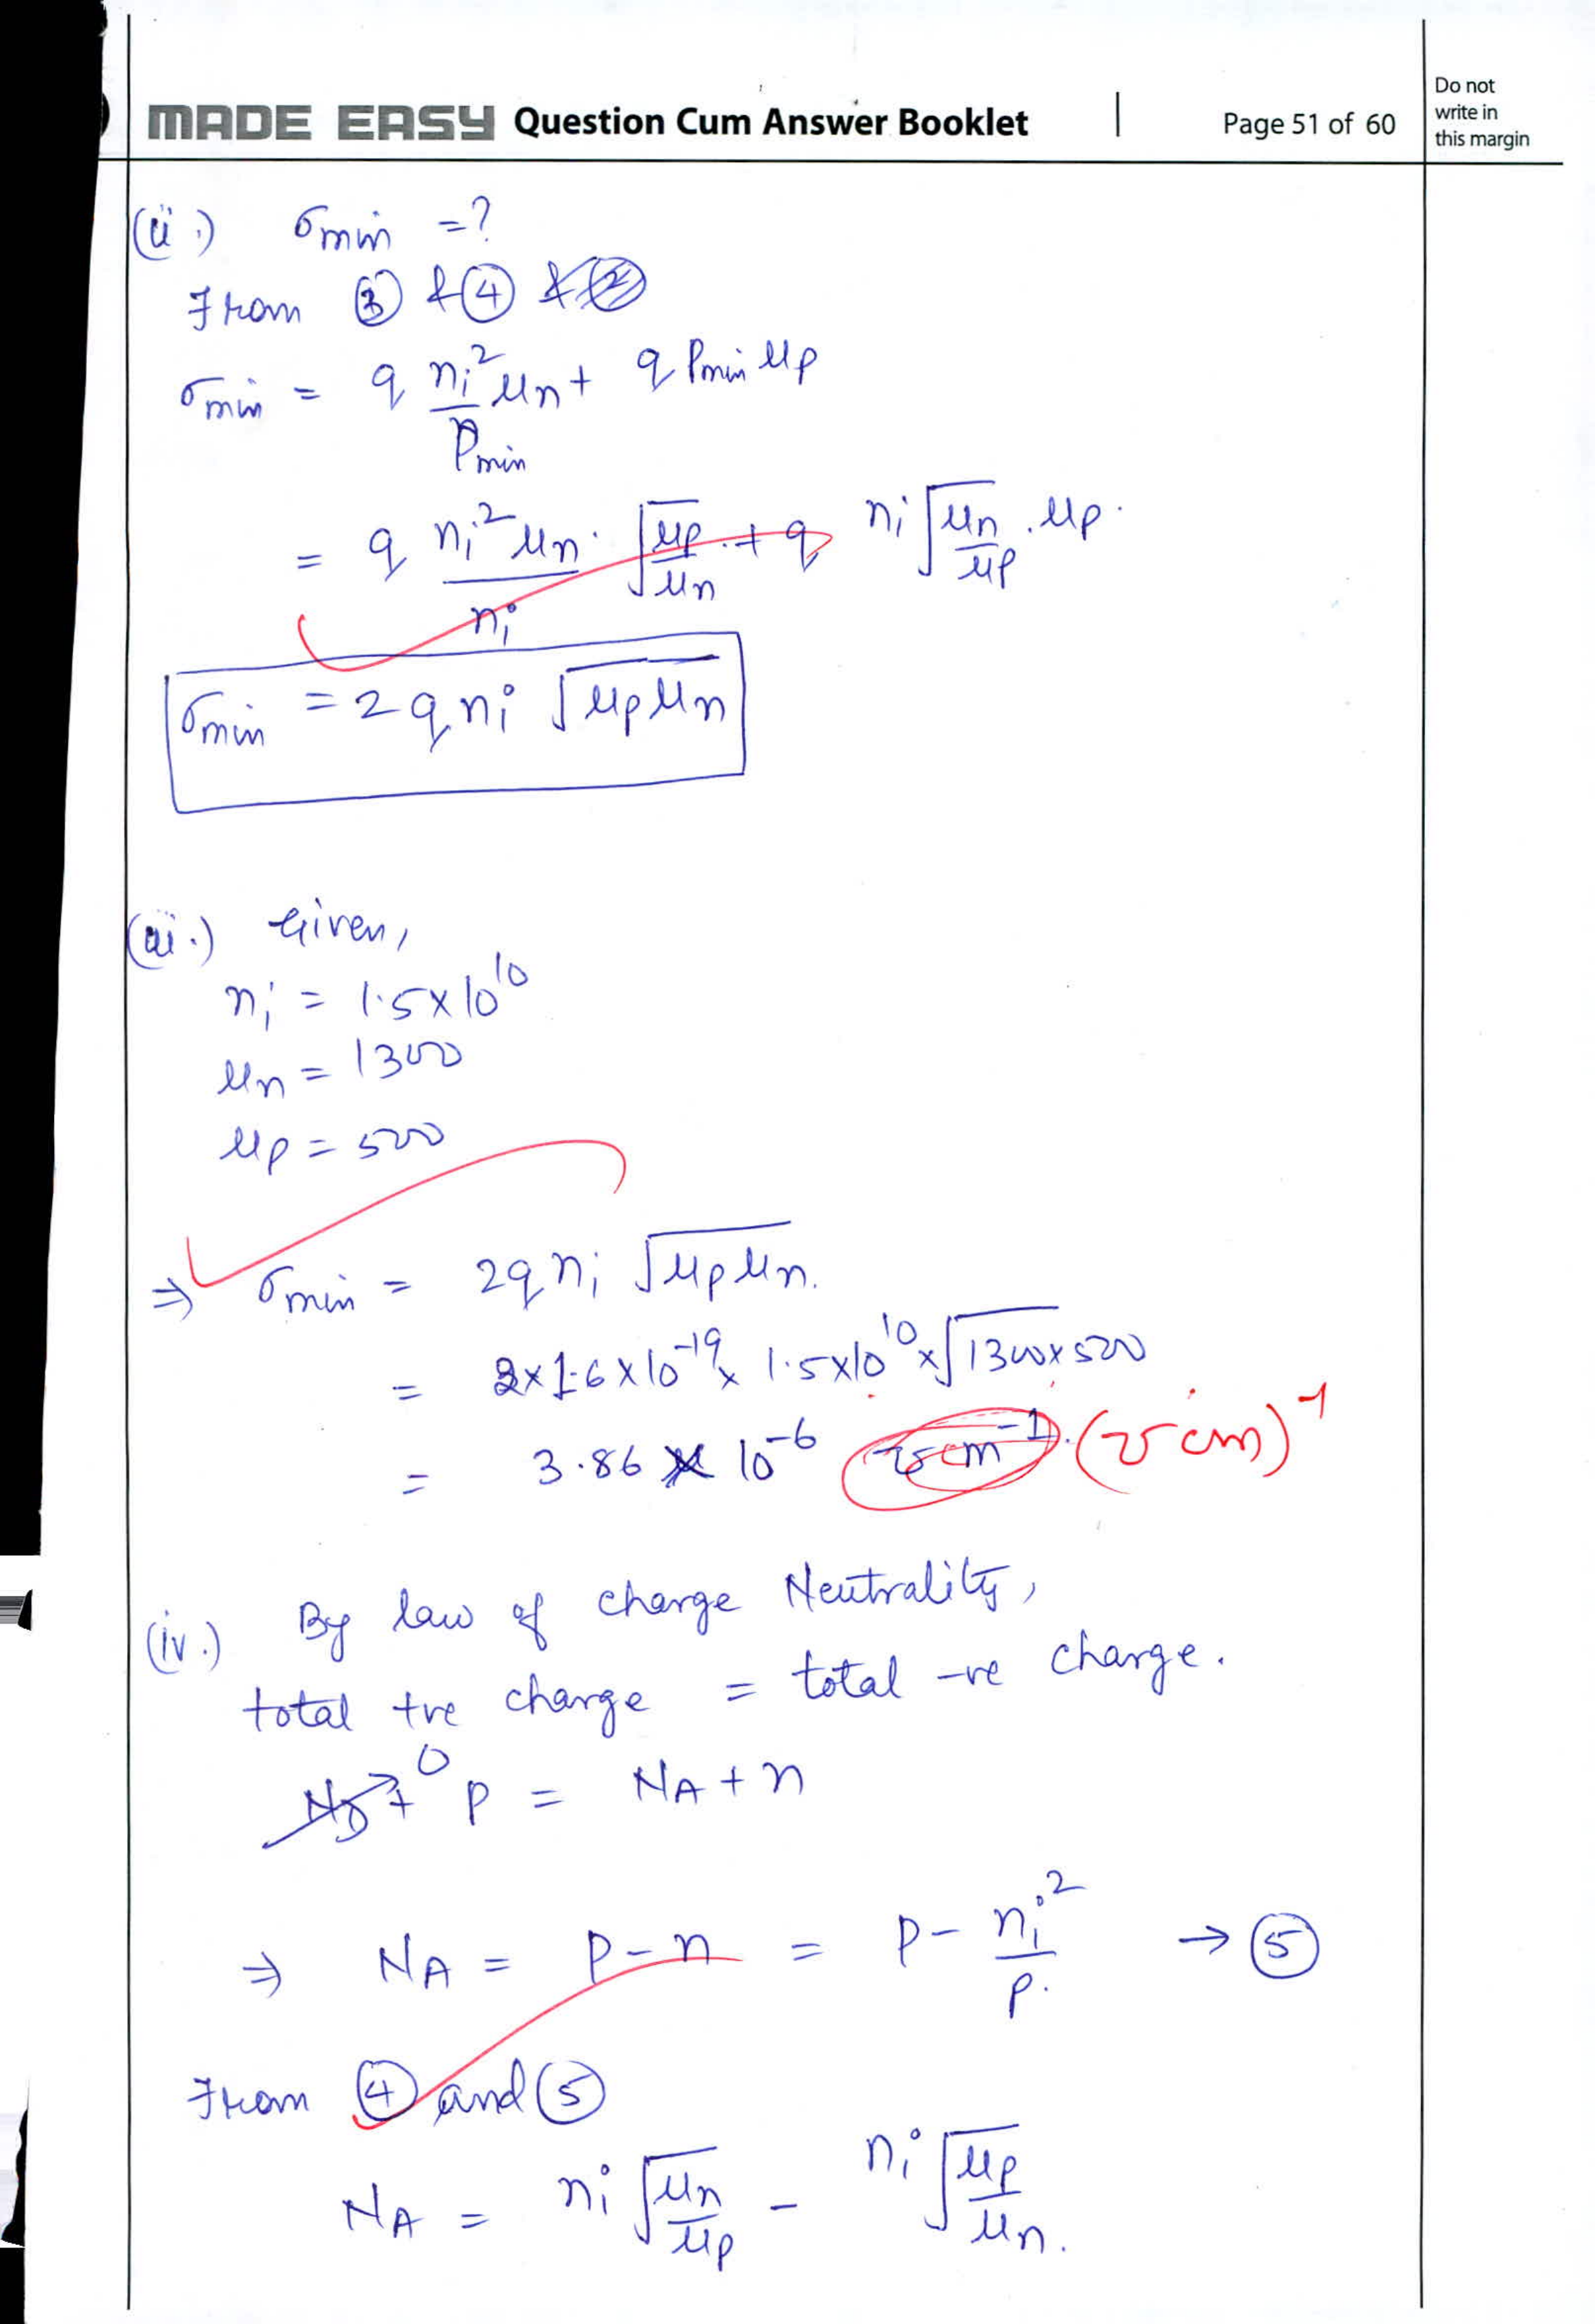 MADE EASY Question Cum Answer Booklet | Page 51 of 60
Do not
write in
this margin
(ii.) σmin = ?
From ③ & ④
σmin = q ni²/Pmin μn + q Pmin μp
= q ni² μn/ni · √(μp/μn) + q ni √(μn/μp) · μp.
σmin = 2 q ni √(μp μn)
(iii.) Given,
ni = 1.5×10¹⁰
μn = 1300
μp = 500
⇒ σmin = 2q ni √(μp μn).
= 2×1.6×10⁻¹⁹ × 1.5×10¹⁰ × √(1300×500)
= 3.86 × 10⁻⁶ ℧cm⁻¹. (℧cm)⁻¹
(iv.) By law of charge Neutrality,
total +ve charge = total -ve charge.
N_D + 0 P = NA + n
⇒ NA = P - n = P - ni²/P. → ⑤
From ④ and ⑤
NA = ni √(μn/μp) - ni √(μp/μn).